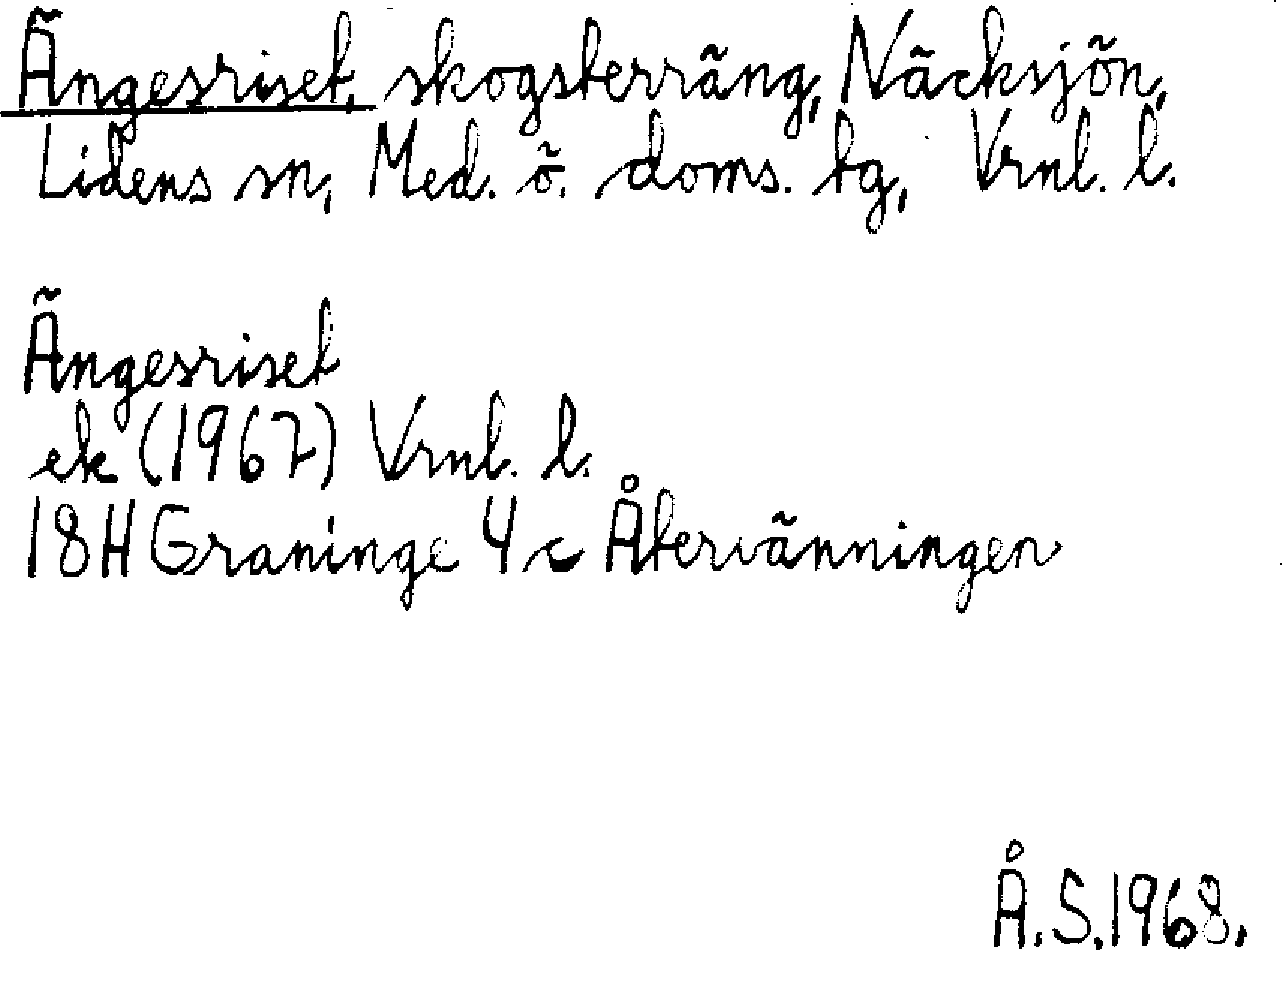 Ängesriset, skogsterräng, Näcksjön,
Lidens sn, Med. ö. doms. tg, Vrnl. l.
Ängesriset
ek (1967) Vrnl. l.
18H Graninge 4 c Återvänningen
Å.S.1968.